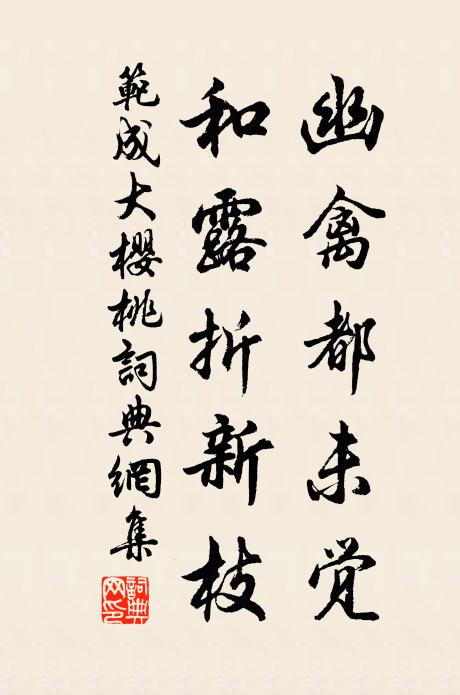 幽禽都未觉
和露折新枝
範成大櫻桃詞典網集
詞典网印